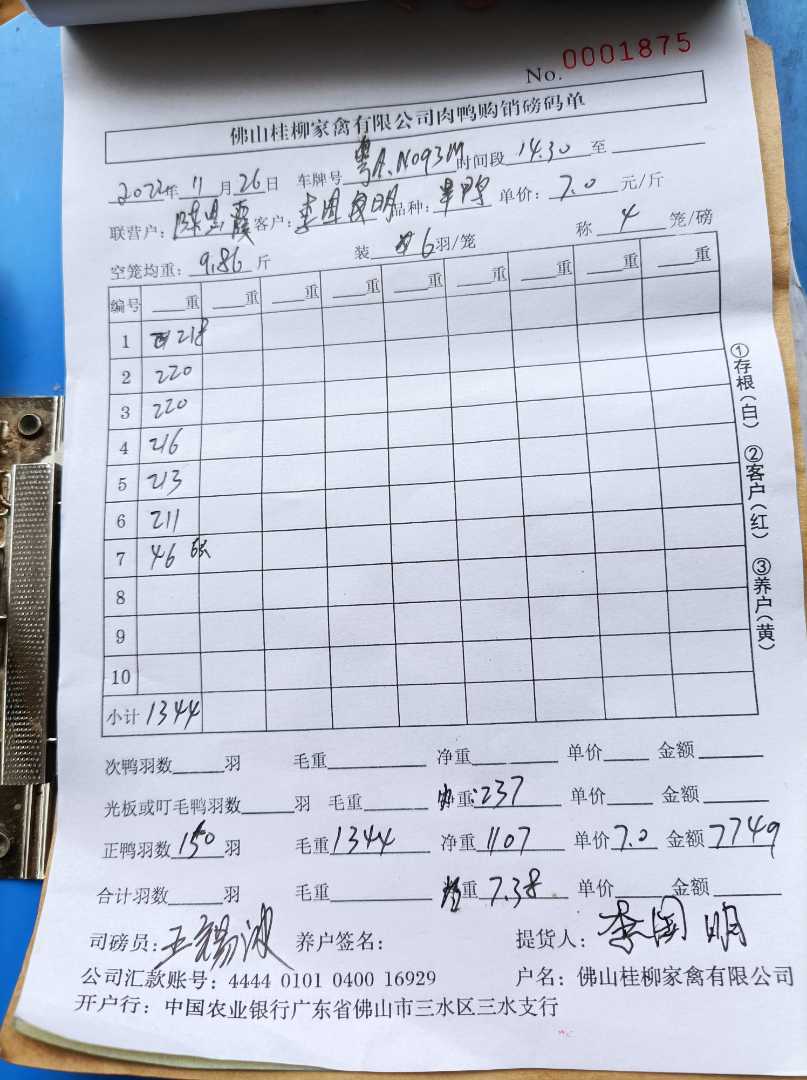 No. 0001875
佛山桂柳家禽有限公司肉鸭购销磅码单
2023年 11月26日 车牌号 粤A.N093M 时间段 14.30 至
联营户: 陈 霞 客户: 李国明 品种: 旱鸭 单价: 7.0 元/斤
空笼均重: 9.86 斤 装 6 羽/笼 称 4 笼/磅
编号 重 重 重 重 重 重 重 重 重
1 218
2 220
3 220
4 216
5 213
6 211
7 46
8
9
10
小计 1344
①存根(白) ②客户(红) ③养户(黄)
次鸭羽数 羽 毛重 净重 单价 金额
光板或叮毛鸭羽数 羽 毛重 重: 237 单价 金额
正鸭羽数 150 羽 毛重 1344 净重 1107 单价 7.0 金额 7749
合计羽数 羽 毛重 重 7.38 单价 金额
司磅员: 王锡 养户签名: 提货人: 李国明
公司汇款账号: 4444 0101 0400 16929 户名: 佛山桂柳家禽有限公司
开户行: 中国农业银行广东省佛山市三水区三水支行